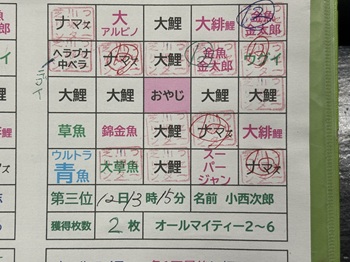 ナマズ 大アルビノ 大鯉 大緋鯉 金魚金太郎
ヘラブナ中ベラ ナマズ 大鯉 金魚金太郎 ウグイ
大鯉 大鯉 おやじ 大鯉 大鯉
草魚 錦金魚 大鯉 ナマズ 大緋鯉
ウルトラ青魚 大草魚 大鯉 スーパージャン ナマズ
第三位 12日13時15分 名前 小西次郎
獲得枚数 2枚 オールマイティー2~6